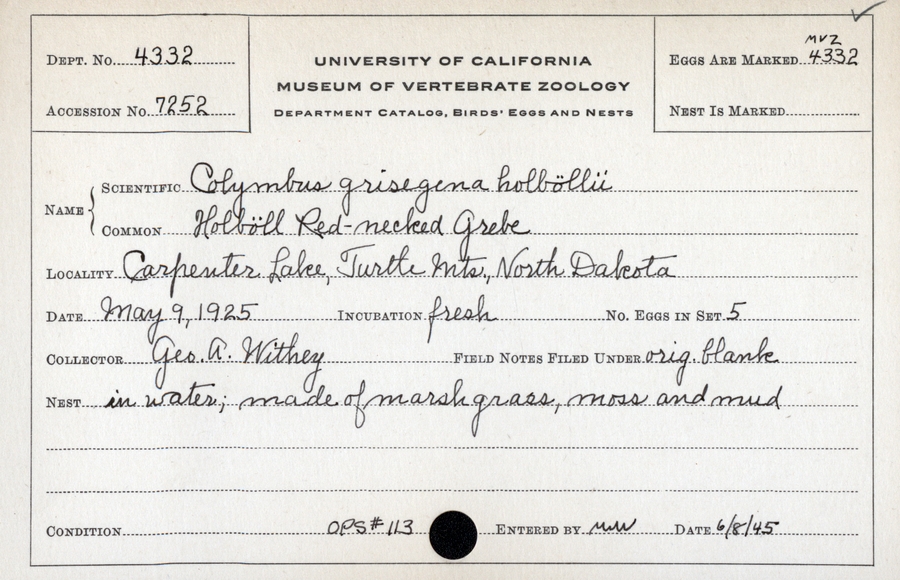 DEPT. NO. 4332
ACCESSION NO. 7252
UNIVERSITY OF CALIFORNIA
MUSEUM OF VERTEBRATE ZOOLOGY
DEPARTMENT CATALOG, BIRDS' EGGS AND NESTS
MVZ
EGGS ARE MARKED 4332
NEST IS MARKED
NAME
SCIENTIFIC Colymbus grisegena holböllii
COMMON Holböll Red-necked Grebe
LOCALITY Carpenter Lake, Turtle Mts., North Dakota
DATE May 9, 1925 INCUBATION fresh NO. EGGS IN SET 5
COLLECTOR Geo. A. Withey FIELD NOTES FILED UNDER orig. blank
NEST in water; made of marsh grass, moss and mud
CONDITION OPS# 113 ENTERED BY DATE 6/8/45